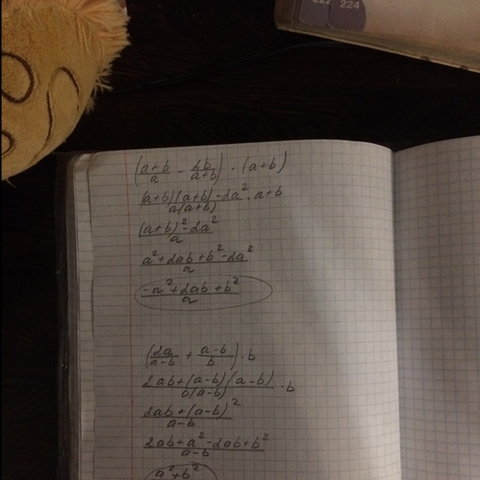 224
(a+b/a - 2b/a+b) · (a+b)
(a+b)(a+b)-2a²/a(a+b) · a+b
(a+b)²-2a²/a
a²+2ab+b²-2a²/a
-a²+2ab+b²/a
(2a/a-b + a-b/b) · b
2ab+(a-b)(a-b)/b(a-b) · b
2ab+(a-b)²/a-b
2ab+a²-2ab+b²/a-b
a²+b²